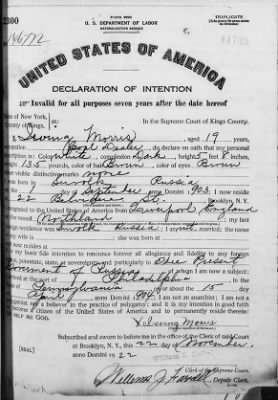 TRIPLICATE
U. S. DEPARTMENT OF LABOR
NATURALIZATION SERVICE
146772
UNITED STATES OF AMERICA
DECLARATION OF INTENTION
Invalid for all purposes seven years after the date hereof
State of New York,
County of Kings,
In the Supreme Court of Kings County.
I, Irving Morris, aged 19 years,
occupation Dealer, do declare on oath that my personal
description is: Color White, complexion Dark, height 5 feet 8 inches,
weight 135 pounds, color of hair Brown, color of eyes Brown
other visible distinctive marks none
I was born in Suvolk Russia
on the 1 day of September, anno Domini 1903; I now reside
at 22 Belvidere St., Brooklyn, N.Y.
I emigrated to the United States of America from Liverpool England
on the vessel Northland; my last
foreign residence was Suvolk Russia; I am not married; the name
of my wife is
she was born at
and now resides at
It is my bona fide intention to renounce forever all allegiance and fidelity to any foreign
prince, potentate, state, or sovereignty, and particularly to The Present
Government of Russia, of whom I am now a subject;
I arrived at the port of Philadelphia, in the
State of Pennsylvania, on or about the 15 day
of April, anno Domini 1904; I am not an anarchist; I am not a
polygamist nor a believer in the practice of polygamy; and it is my intention in good faith
to become a citizen of the United States of America and to permanently reside therein:
SO HELP ME GOD.
Irving Morris
Subscribed and sworn to before me in the office of the Clerk of said Court
at Brooklyn, N. Y., this 22 day of November,
anno Domini 1922
[SEAL]
Clerk of the Supreme Court.
Deputy Clerk.